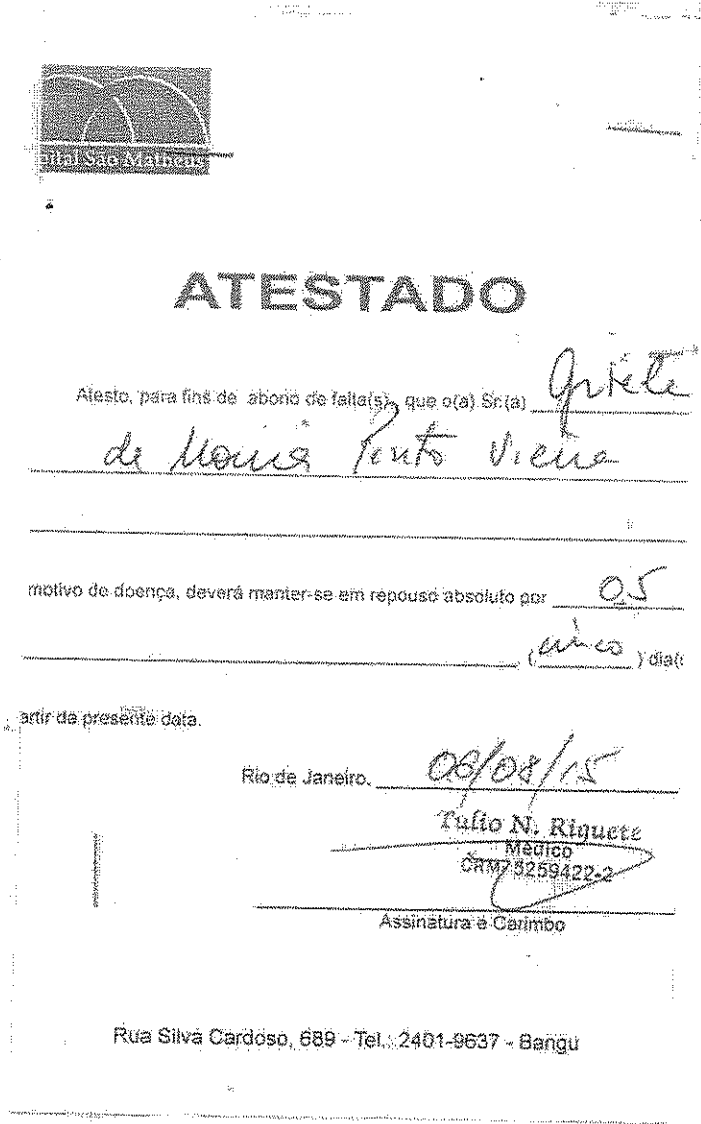 pital São Matheus
ATESTADO
Atesto, para fins de abono de falta(s), que o(a) Sr.(a)
de Pinto Vieira
motivo de doença, deverá manter-se em repouso absoluto por 05
(cinco) dia(
artir da presente data.
Rio de Janeiro, 06/08/15
Tulio N. Riquete
Médico
CRM 75259422-2
Assinatura e Carimbo
Rua Silva Cardoso, 689 - Tel.: 2401-9637 - Bangu